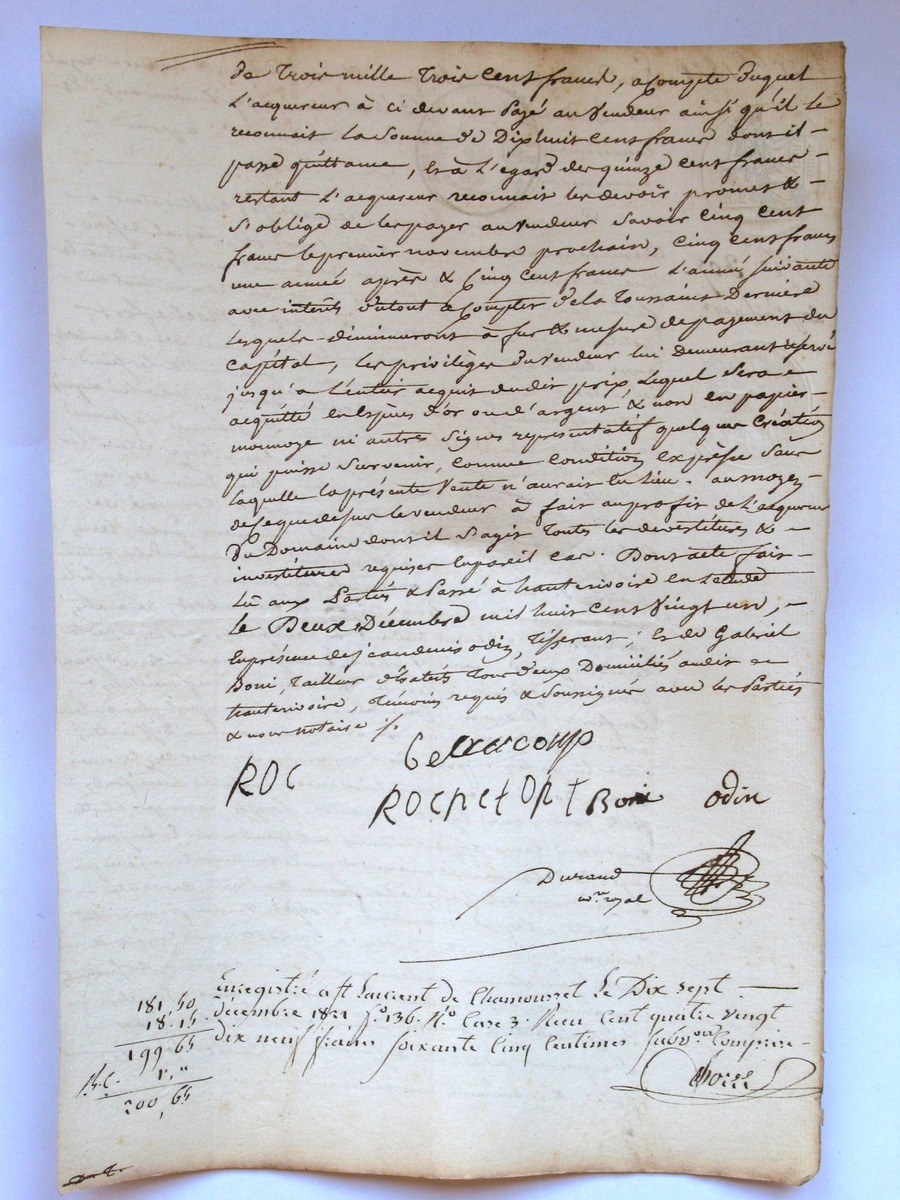 de Trois mille Trois cent francs, acompte duquel
L'acquereur à ci devant Payé au Vendeur ainsi qu'il le
reconnait la Somme de Dixhuit Cent francs dont il
passe quittance, Et à L'egard des quinze cent francs
restant L'acquereur reconnait les devoir promet &
S'oblige de les payer au Vendeur Savoir Cinq Cent
francs le premier novembre prochain, Cinq Cent francs
une année après & Cinq Cent francs L'année Suivante
avec intérêts dutout acompter de la Toussaint Dernière
Lesquels diminueront à fur & mesure de payement du
Capital, les privilèges du Vendeur lui Demeurant reservé
jusqu'a L'entier acquit dudit prix, Lequel Sera
acquitté en Espèces d'or ou d'argent & non en papier
monnoye ni autres Signes representatif quelque Création
qui puisse Survenir, Comme Condition expresse Sans
laquelle la présente Vente n'aurait Eu Lieu. au moyen
de ce que dessus le vendeur à fait au profit de L'acquereur
Du Domaine dont il S'agit Toutes les devestitures &
investitures requises En pareil cas. Dont acte fait
Lû aux Parties & Passé à hauterivoire en Letude
Le Deux Décembre mil huit cent Vingt un,
En présence de jean denis odin, Tisserant, Et de Gabriel
Boni, Tailleur d'habits Tous deux Domiciliés audit
hauterivoire, Témoins requis & Soussignés avec les Parties
& nous notaire ./.
Beaucoup
ROC
ROCHEFORT Boni odin
Durand
nre royal
Enregistré a St Laurent de Chamousset Le Dix sept
Décembre 1821 fo 136. Ro Case 3. Reçu Cent quatre vingt
Dix neuf francs soixante Cinq Centimes Subvon Comprise
181 50
18.15
199 65
1, "
200, 65